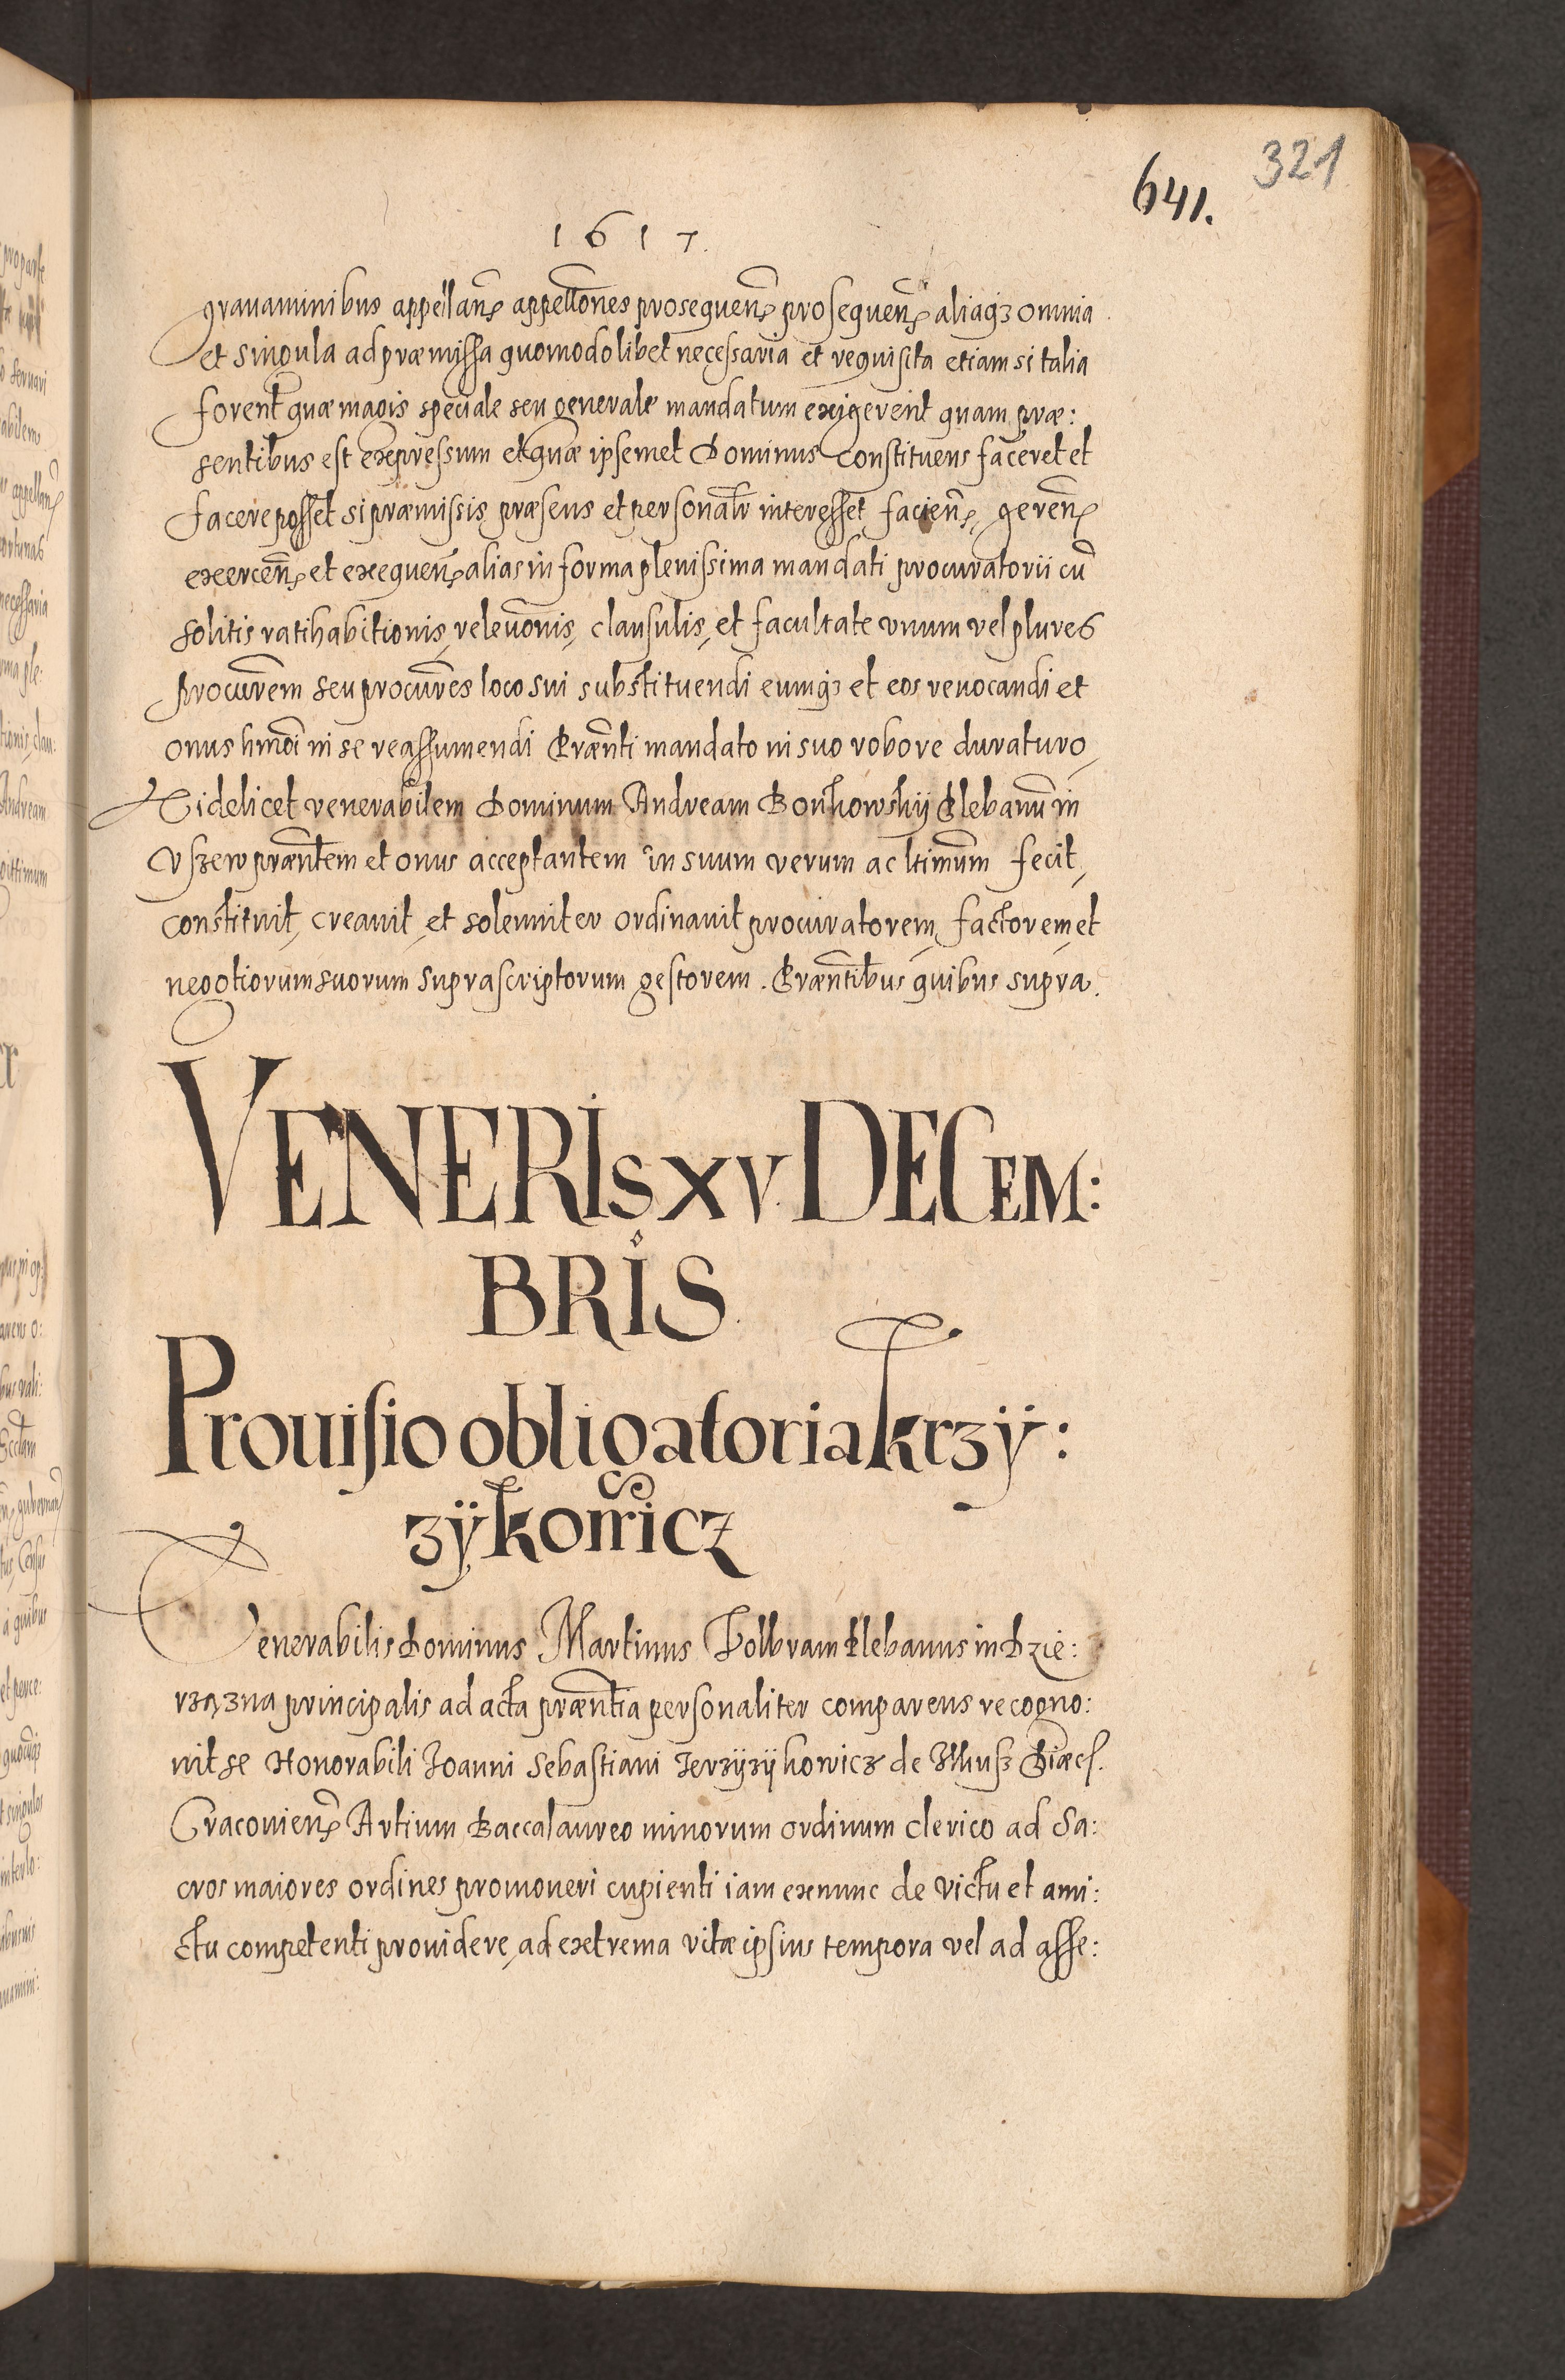 321
641.
1617.
grauaminibus appellanᷤ appellõnes prosequenᷤ prosequenᷤ aliaqꝫ omnia
et singula ad præmissa quomodolibet necessaria et requisita etiam si talia
forent quæ magis speciale seu generale mandatum exigerent quam præ:
sentibus est expressum et quæ ipsemet Dominus constituens faceret et
facere posset si præmissis præsens et personalr̃ interesset, facienᷤ, gerenᷤ
exercenᷤ et exequenᷤ alias in forma plenissima mandati procuratorii cũ
solitis ratihabitionis, releuõnis, clausulis, et facultate vnum vel plures
Procurẽm seu procurẽs loco sui substituendi eumqꝫ et eos reuocandi et
onus hmõi in se reassumendi Præñti mandato in suo robore duraturo,
Videlicet venerabilem Dominum Andream Bonkowskÿ Plebanũ in
Vszew præñtem et onus acceptantem in suum verum ac ltimũm fecit,
constituit, creauit, et solenniter ordinauit procuratorem, factorem, et
negotiorum suorum suprascriptorum gestorem. Præñtibus quibus supra.
VENERIS XV. DECEM:
BRIS.
Prouisio obligatoria krzÿ:
zÿkowicz
Venerabilis Dominus Martinus Wolbram Plebanus in Dzie:
rzązna principalis ad acta præñtia personaliter comparens recogno:
uit se Honorabili Ioanni Sebastiani Jerzÿzÿkowicz de Ilkusz Diæcꝭ.
Cracouienᷤ Artium Baccalaureo minorum ordinum clerico ad Sa:
cros maiores ordines promoueri cupienti iam exnunc de victu et ami:
ctu competenti prouidere, ad extrema vitæ ipsius tempora vel ad asse: